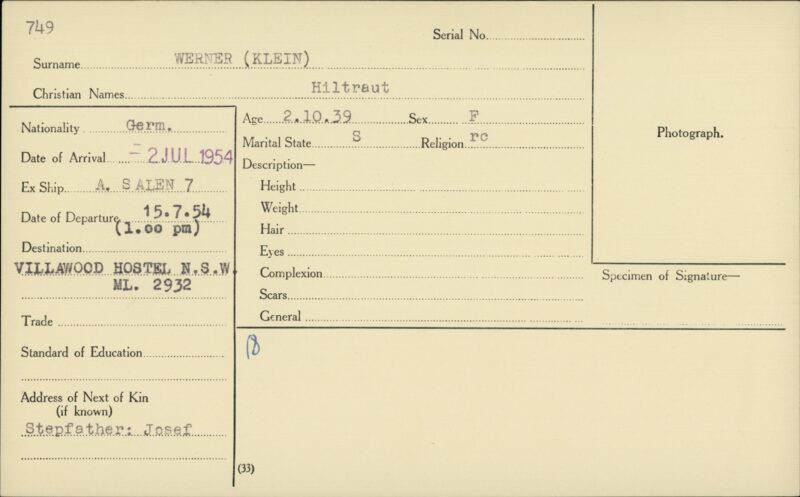 749
Serial No.
Surname WERNER (KLEIN)
Christian Names Hiltraut
Nationality Germ.
Date of Arrival - 2 JUL 1954
Ex Ship. A. SALEN 7
Date of Departure 15.7.54
(1.00 pm)
Destination
VILLAWOOD HOSTEL N.S.W.
ML. 2932
Trade
Standard of Education
Address of Next of Kin
(if known)
Stepfather: Josef
Age 2.10.39 Sex F
Marital State S Religion rc
Description—
Height
Weight
Hair
Eyes
Complexion
Scars
General
Photograph.
Specimen of Signature—
(33)